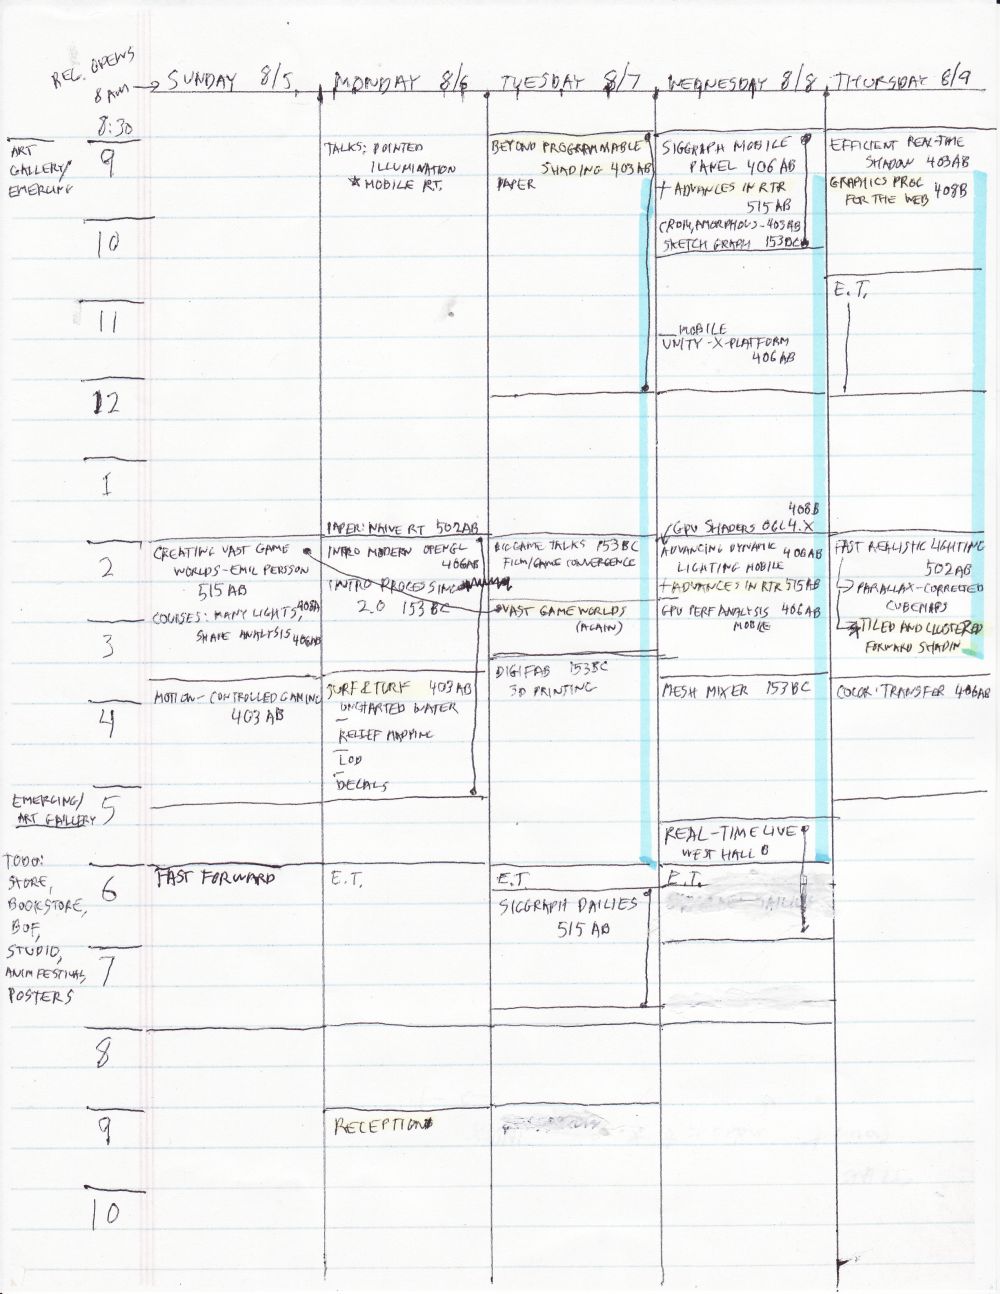 REG. OPENS
8 AM → SUNDAY 8/5 MONDAY 8/6 TUESDAY 8/7 WEDNESDAY 8/8 THURSDAY 8/9
8:30
ART
GALLERY/
EMERGING
9
10
11
12
1
2
3
4
EMERGING/
ART GALLERY
5
TODO:
STORE,
BOOKSTORE,
BOF,
STUDIO,
ANIM FESTIVAL,
POSTERS
6
7
8
9
10
CREATING VAST GAME
WORLDS - EMIL PERSSON
515 AB
COURSES: MANY LIGHTS, 408A
SHAPE ANALYSIS 406AB
MOTION-CONTROLLED GAMING
403 AB
FAST FORWARD
TALKS: POINTED
ILLUMINATION
* MOBILE RT.
PAPER: NAIVE RT 502AB
INTRO MODERN OPENGL
406AB
INTRO PROCESSING
2.0 153 BC
SURF & TURF 403AB
UNCHARTED WATER
RELIEF MAPPING
LOD
DECALS
E.T.
RECEPTION
BEYOND PROGRAMMABLE
SHADING 403 AB
PAPER
BIG GAME TALKS 153 BC
FILM/GAME CONVERGENCE
VAST GAME WORLDS
(AGAIN)
DIGIFAB 153BC
3D PRINTING
E.T
SIGGRAPH DAILIES
515 AB
SIGGRAPH MOBILE
PANEL 406 AB
+ ADVANCES IN RTR
515 AB
AMORPHOUS - 403AB
SKETCH GRAPH 153BC
MOBILE
UNITY-X-PLATFORM
406 AB
408B
GPU SHADERS OGL 4.X
ADVANCING DYNAMIC 406AB
LIGHTING MOBILE
+ ADVANCES IN RTR 515 AB
GPU PERF ANALYSIS 406AB
MOBILE
MESH MIXER 153 BC
REAL-TIME LIVE
WEST HALL B
E.T.
EFFICIENT REAL-TIME
SHADOW 403AB
GRAPHICS PROG 408B
FOR THE WEB
E.T.
FAST REALISTIC LIGHTING
502 AB
PARALLAX-CORRECTED
CUBEMAPS
TILED AND CLUSTERED
FORWARD SHADIN
COLOR TRANSFER 406AB